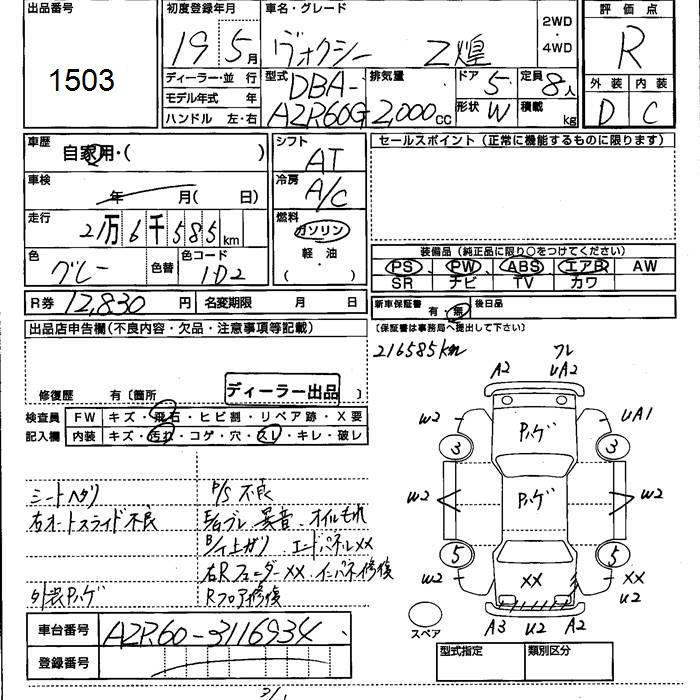 出品番号
1503
初度登録年月
19 5月
車名・グレード
ヴォクシー Z煌
2WD
・
4WD
評価点
R
外装 内装
D C
ディーラー・並行
モデル年式 年
ハンドル 左・右
型式
DBA-
AZR60G
排気量
2,000cc
ドア
5
定員
8人
形状
W
積載
kg
車歴
自家用・( )
車検
年 月( 日)
走行
21万6千585km
色
グレー
色替
色コード
1D2
シフト
AT
冷房
A/C
燃料
ガソリン
軽・油
( )
セールスポイント (正常に機能するものに限ります)
装備品(純正品に限り○をつけてください)
PS PW ABS エアB AW
SR ナビ TV カワ
R券 12,830円
名変期限 月 日
新車保証書
有・無
後日品
(保証書は事務局へ提出して下さい)
出品店申告欄(不良内容・欠品・注意事項等記載)
修復歴 有〔箇所 〕
ディーラー出品
216585km
検査員
記入欄
FW キズ・飛石・ヒビ割・リペア跡・X要
内装 キズ・汚れ・コゲ・穴・スレ・キレ・破レ
シートヘタリ
右オートスライド不良
外装Pハゲ
P/S不良
E/gブレ 異音、オイルもれ
B/下上ガリ エンドパネルXX
右RフェンダーXX インパネ修復
Rフロア修復
A2 フレ UA2
W2 UA1
3 3
Pハゲ
W2 Pハゲ W2
5 5
W2 XX XX
U2
A3 U2 A2
スペア
車台番号
AZR60-3116934
登録番号
型式指定
類別区分